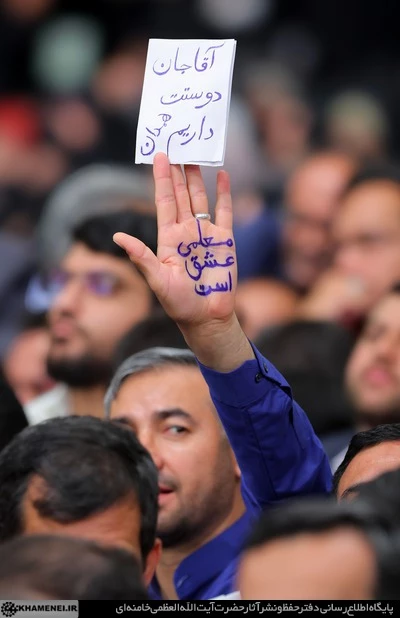 آقاجان
دوستت
داریم همدان
معلمی
عشق
است
KHAMENEI.IR
پایگاه اطلاع رسانی دفتر حفظ و نشر آثار حضرت آیت الله العظمی خامنه‌ای